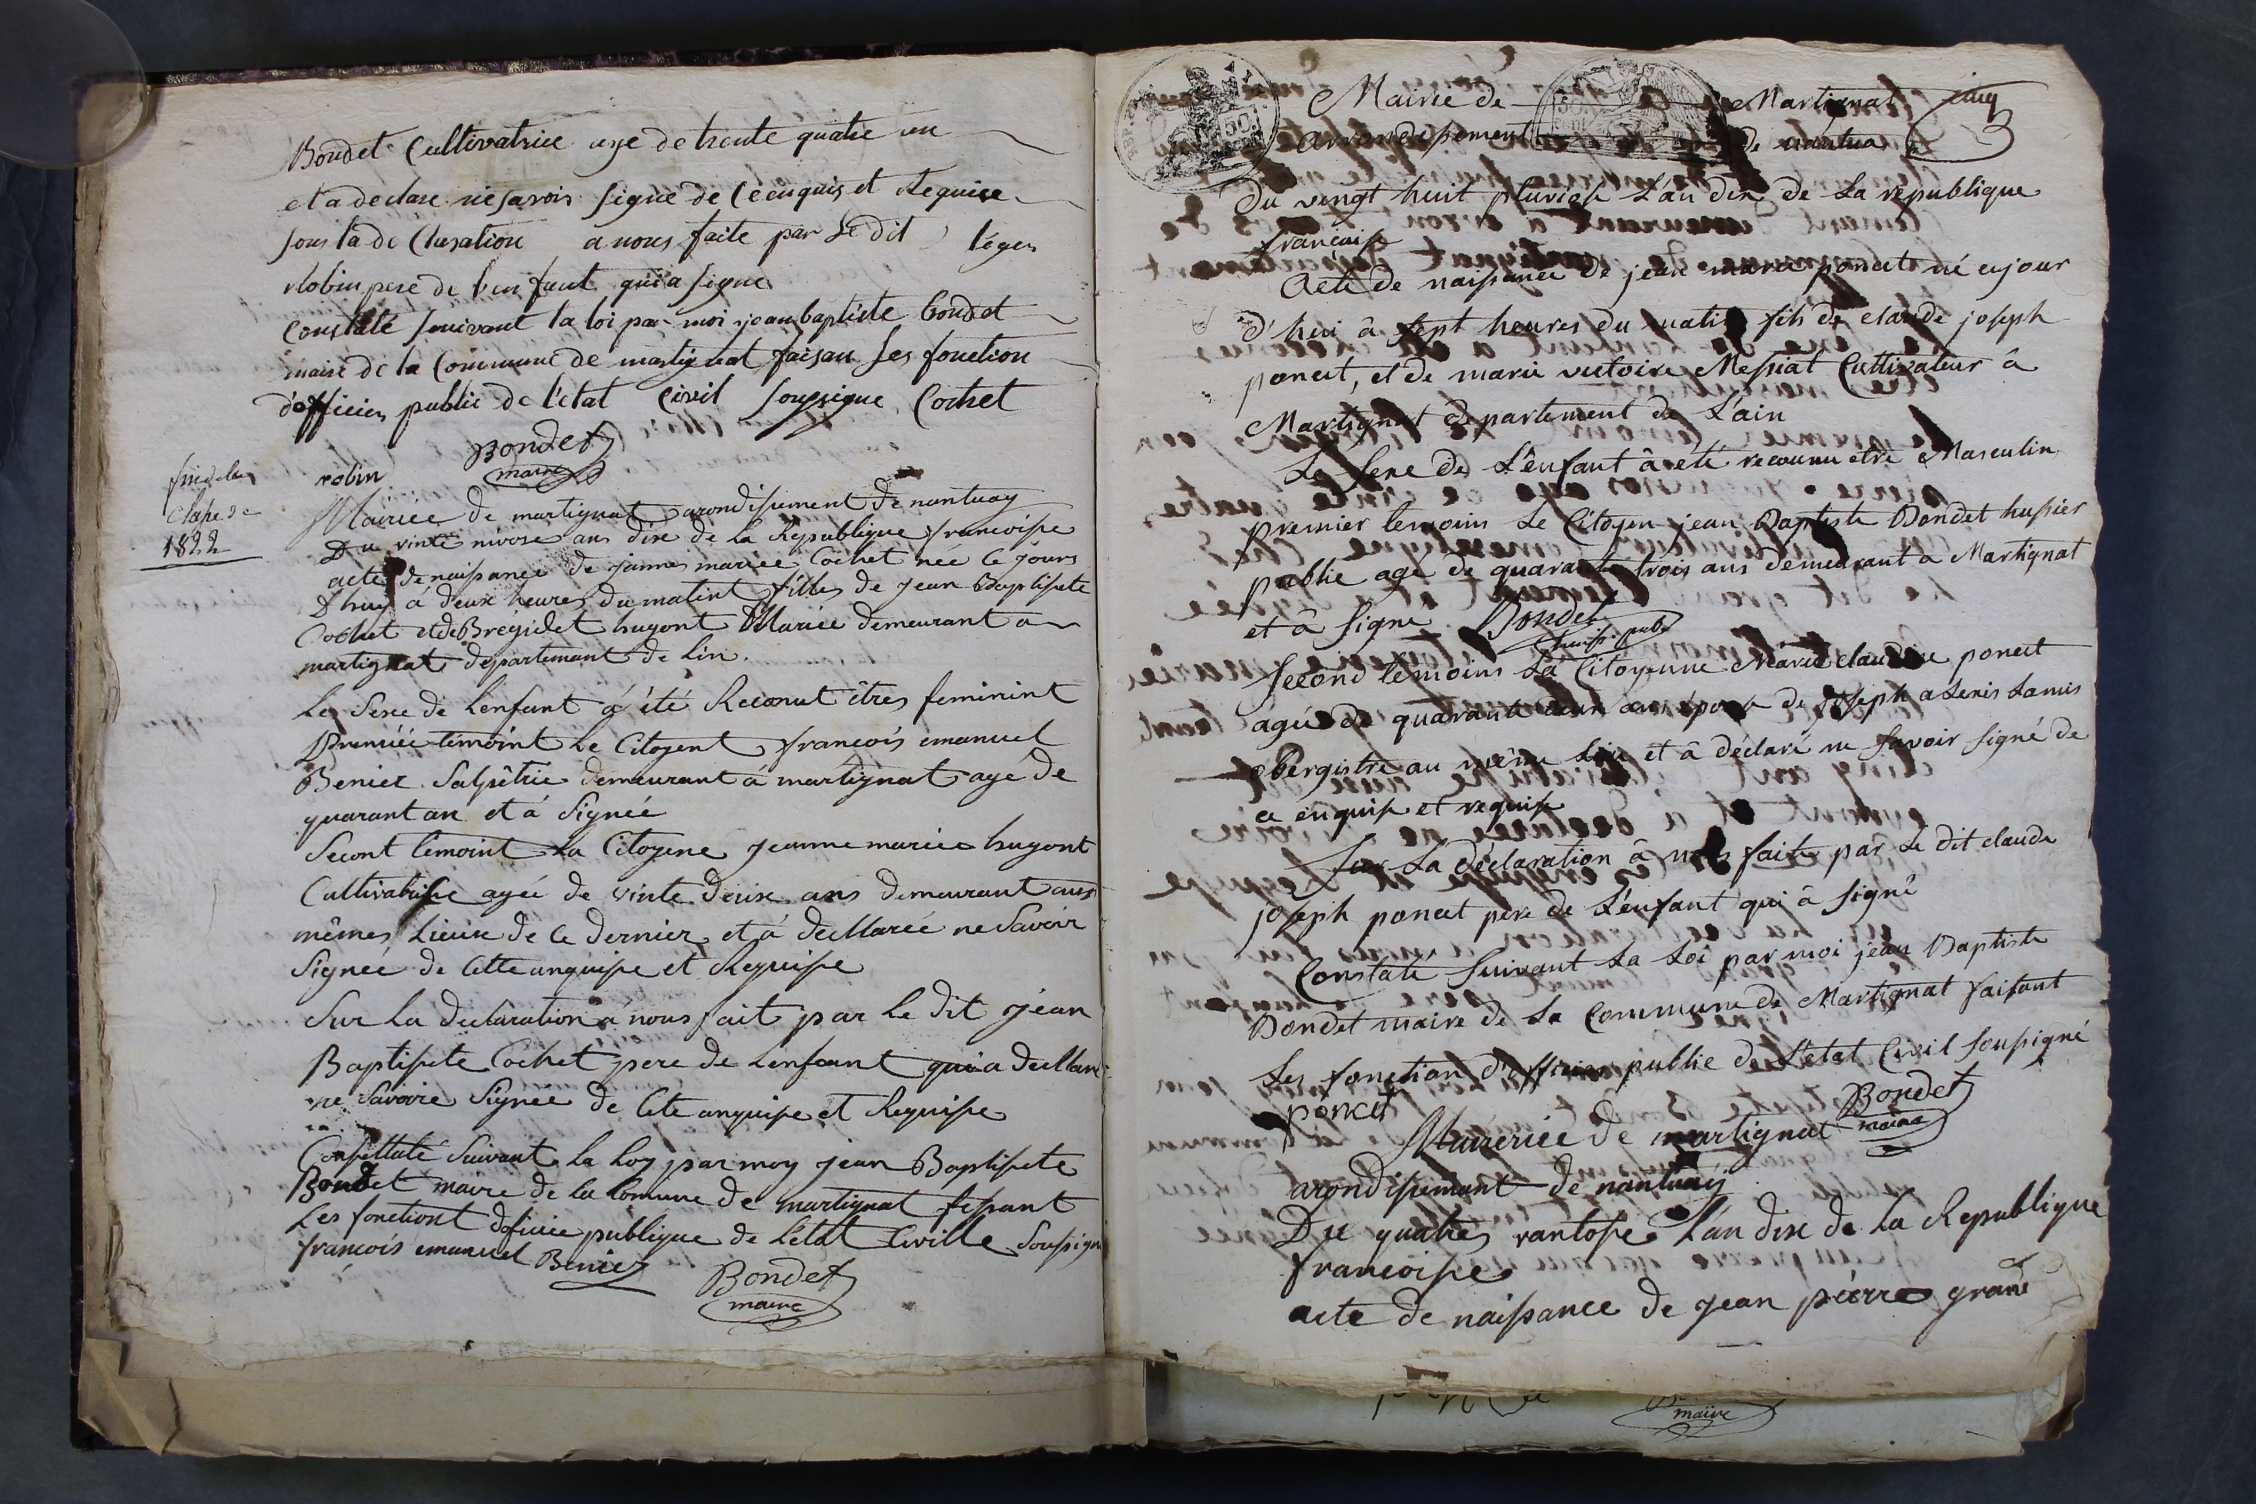 Bondet Cultivatrice age de trente quatre an
et a declare ne savoir signe de Ce enquis et Requise
sous la declaration a nous faite par Le dit léger
Robin pere de lenfant qui a signe
Constaté suivant la loi par moi jean baptiste bondet
maire de la Commune de martignat faisan les fonction
d'officier public de l'état Civil soussigne Cochet
robin Bondet
maire
Clase de
1822
Mairiee de martignat arondisement de nantuay
Du vinte nivose ans dixe de la Republique francoise
acte de naissance de janne mariee Cochet née Ce jours
Dhuy á deux heures du matint filles de jean Baptisete
Cochet et de Bregidet hugont Mariée demeurant a
martignat departemant de Lin.
Le Sexe de Lenfant á été Reconut êtres feminint
Premiée temoint Le Citoyent francois emanuel
Beniee Salpêtrie demeurant á martignat agé de
quarant an et á Signée
Secont temoint La Citoyene jeanne mariee hugont
Cultivatrisse agée de vinte deux ans demeurant aux
mêmes Lieux de Ce dernier et á decllarée ne Savoir
Signée de Cette anquisse et Requisse
Sur La declaration á nous fait par Le dit jean
Baptisete Cochet pere de Lenfant qui a decllare
ne Savoire Signee de Cete anquisse et Requisse
Consettaté Suivant La Loy par moy jean Baptisete
Bondet maire de la Comune de martignat fesant
Les fonctiont doficiee publique de Létat Civille Soussigne
francois emanuel Beniez Bondet
maire
Mairie de Martignat cinq
arrondissement de nantua
Du vingt huit pluviose L'an dix de La république
française
Acte de naissance de jean marie poncet né cejour
d'hui à sept heures du matin fils de claude joseph
poncet, et de marie victoire Messiat Cultivateur à
Martignat departement de L'ain
Le sexe de L'enfant à été reconnu etre Masculin
Premier temoins Le Citoyen jean Baptiste Bondet hussier
Public age de quarante trois ans demeurant a Martignat
et à signe Bondet
huiss. pub.
second temoins La Citoyenne Marie claudine poncet
agée de quarante deux ans épouse de joseph alexis Lamis
obergistre au même Lieu et à déclaré ne savoir signé de
ce enquise et requise
sur La déclaration à nous faite par Le dit claude
joseph poncet pere de L'enfant qui à signé
Constaté suivant La Loi par moi jean Baptiste
Bondet maire de La Commune de Martignat faisant
Les fonction d'officier public de L'état Civil soussigné
poncet Bondet
maire
Maireriee de martignat
arondissemant de nantuaij
Du quatre vantose L'an dixe de La Republique
francoise
acte de naissance de jean pierre grand
maire